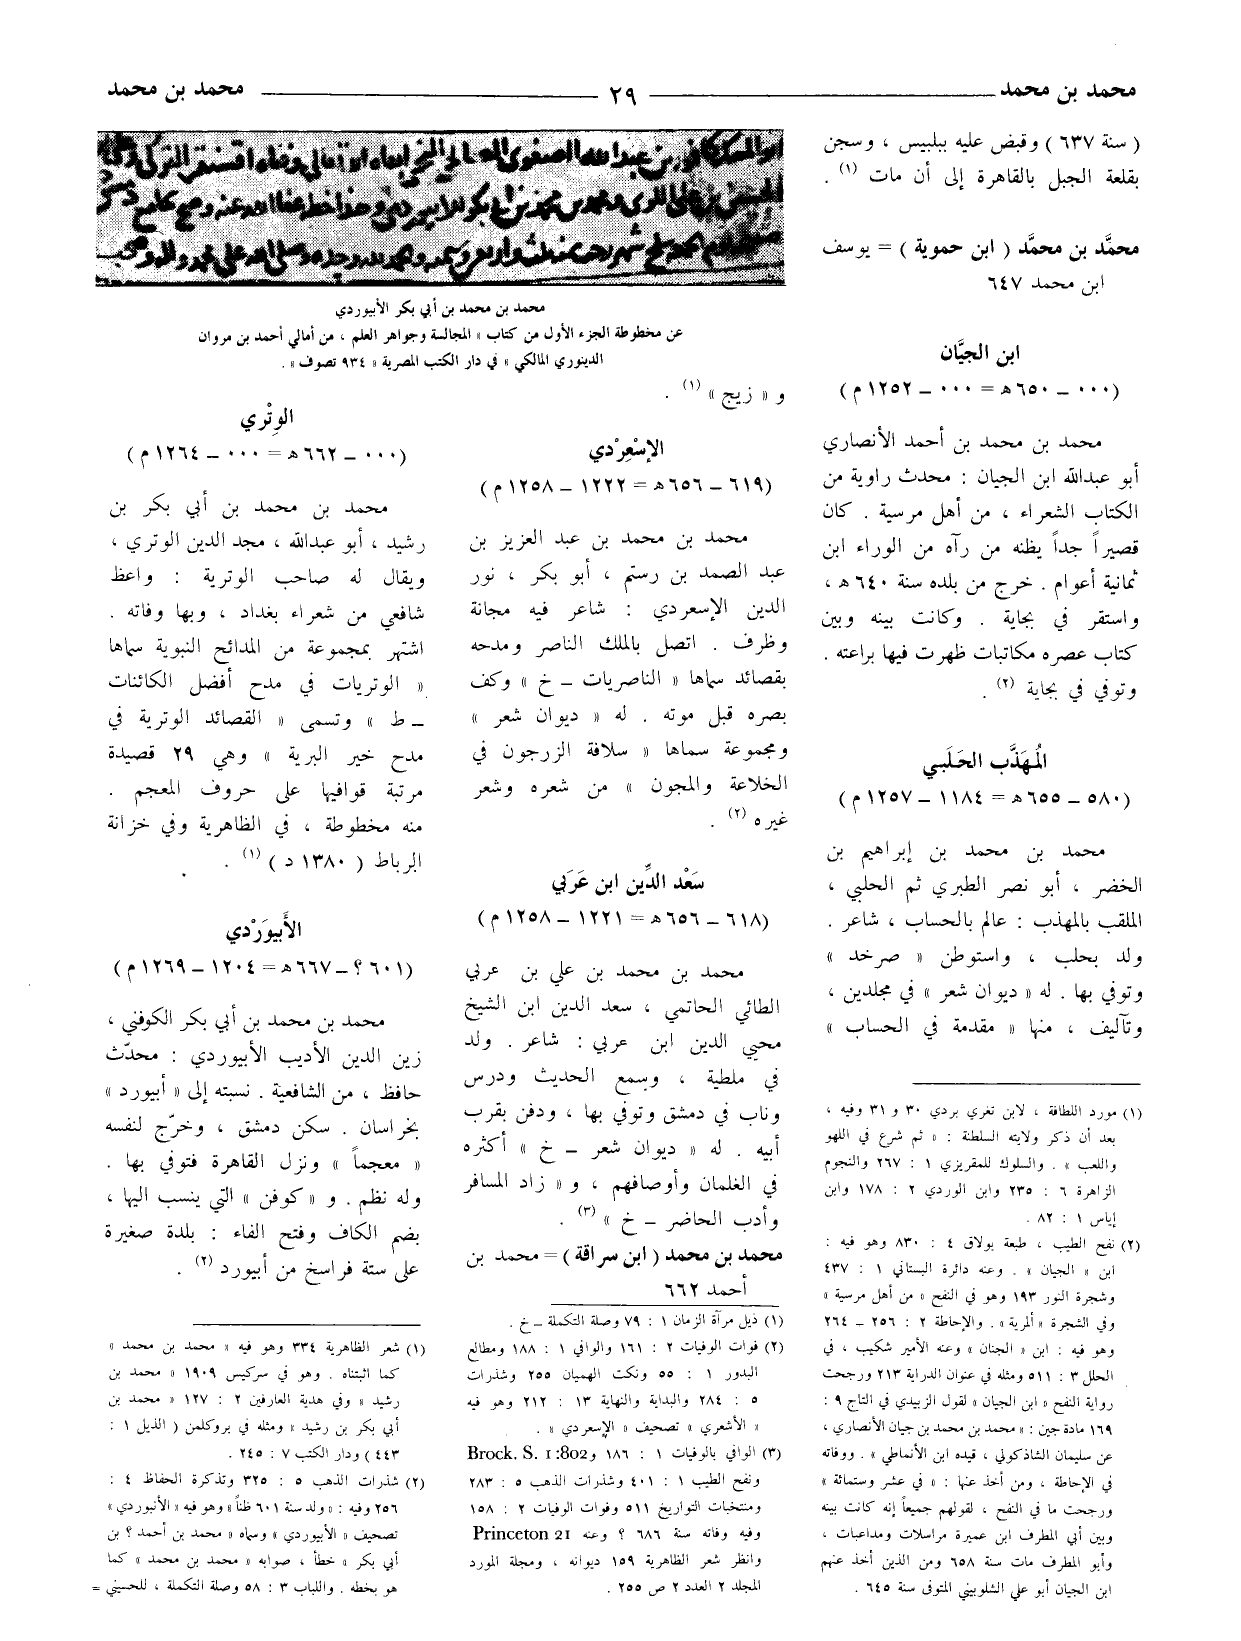 محمد بن محمد ــــــ ٢٩ ــــــ محمد بن محمد
( سنة ٦٣٧ ) وقبض عليه ببلبيس ، وسجن
بقلعة الجبل بالقاهرة إلى أن مات (١) .
محمَّد بن محمَّد ( ابن حموية ) = يوسف
ابن محمد ٦٤٧
ابن الجيَّان
(٠٠٠ ــ ٦٥٠ هـ = ٠٠٠ ــ ١٢٥٢ م )
محمد بن محمد بن أحمد الأنصاري
أبو عبدالله ابن الجيان : محدث راوية من
الكتاب الشعراء ، من أهل مرسية . كان
قصيراً جداً يظنه من رآه من الوراء ابن
ثمانية أعوام . خرج من بلده سنة ٦٤٠ هـ ،
واستقر في بجاية . وكانت بينه وبين
كتاب عصره مكاتبات ظهرت فيها براعته .
وتوفي في بجاية (٢) .
المُهَذَّب الحَلَبي
(٥٨٠ ــ ٦٥٥ هـ = ١١٨٤ ــ ١٢٥٧ م )
محمد بن محمد بن إبراهيم بن
الخضر ، أبو نصر الطبري ثم الحلبي ،
الملقب بالمهذب : عالم بالحساب ، شاعر .
ولد بحلب ، واستوطن « صرخد »
وتوفي بها . له « ديوان شعر » في مجلدين ،
وتآليف ، منها « مقدمة في الحساب »
(١) مورد اللطافة ، لابن تغري بردي ٣٠ و ٣١ وفيه ،
بعد أن ذكر ولايته السلطنة : « ثم شرع في اللهو
واللعب » . والسلوك للمقريزي ١ : ٢٦٧ والنجوم
الزاهرة ٦ : ٢٣٥ وابن الوردي ٢ : ١٧٨ وابن
إياس ١ : ٨٢ .
(٢) نفح الطيب ، طبعة بولاق ٤ : ٨٣٠ وهو فيه :
ابن « الجيان » . وعنه دائرة البستاني ١ : ٤٣٧
وشجرة النور ١٩٣ وهو في النفح « من أهل مرسية »
وفي الشجرة « ألمرية » . والإحاطة ٢ : ٢٥٦ ــ ٢٦٤
وهو فيه : ابن « الجنان » وعنه الأمير شكيب ، في
الحلل ٣ : ٥١١ ومثله في عنوان الدراية ٢١٣ ورجحت
رواية النفح « ابن الجيان » لقول الزبيدي في التاج ٩ :
١٦٩ مادة جين : « محمد بن محمد بن جيان الأنصاري ،
عن سليمان الشاذكوني ، قيده ابن الأنماطي » . ووفاته
في الإحاطة ، ومن أخذ عنها : « في عشر وستمائة »
ورجحت ما في النفح ، لقولهم جميعاً إنه كانت بينه
وبين أبي المطرف ابن عميرة مراسلات ومداعبات ،
وأبو المطرف مات سنة ٦٥٨ ومن الذين أخذ عنهم
ابن الجيان أبو علي الشلوبيني المتوفى سنة ٦٤٥ .
محمد بن محمد بن أبي بكر الأبيوردي
عن مخطوطة الجزء الأول من كتاب « المجالسة وجواهر العلم ، من أمالي أحمد بن مروان
الدينوري المالكي » في دار الكتب المصرية « ٩٣٤ تصوف » .
و « زيج » (١) .
الإسْعِرْدي
(٦١٩ ــ ٦٥٦ هـ = ١٢٢٢ ــ ١٢٥٨ م )
محمد بن محمد بن عبد العزيز بن
عبد الصمد بن رستم ، أبو بكر ، نور
الدين الإسعردي : شاعر فيه مجانة
وظرف . اتصل بالملك الناصر ومدحه
بقصائد سماها « الناصريات ــ خ » وكف
بصره قبل موته . له « ديوان شعر »
ومجموعة سماها « سلافة الزرجون في
الخلاعة والمجون » من شعره وشعر
غيره (٢) .
سَعْد الدِّين ابن عَرَبي
(٦١٨ ــ ٦٥٦ هـ = ١٢٢١ ــ ١٢٥٨ م )
محمد بن محمد بن علي بن عربي
الطائي الحاتمي ، سعد الدين ابن الشيخ
محيي الدين ابن عربي : شاعر . ولد
في ملطية ، وسمع الحديث ودرس
وناب في دمشق وتوفي بها ، ودفن بقرب
أبيه . له « ديوان شعر ــ خ » أكثره
في الغلمان وأوصافهم ، و « زاد المسافر
وأدب الحاضر ــ خ » (٣) .
محمد بن محمد ( ابن سراقة ) = محمد بن
أحمد ٦٦٢
(١) ذيل مرآة الزمان ١ : ٧٩ وصلة التكملة ــ خ .
(٢) فوات الوفيات ٢ : ١٦١ والوافي ١ : ١٨٨ ومطالع
البدور ١ : ٥٥ ونكت الهميان ٢٥٥ وشذرات
٥ : ٢٨٤ والبداية والنهاية ١٣ : ٢١٢ وهو فيه
« الأشعري » تصحيف « الإسعردي » .
(٣) الوافي بالوفيات ١ : ١٨٦ و Brock. S. 1:802
ونفح الطيب ١ : ٤٠١ وشذرات الذهب ٥ : ٢٨٣
ومنتخبات التواريخ ٥١١ وفوات الوفيات ٢ : ١٥٨
وفيه وفاته سنة ٦٨٦ ؟ وعنه Princeton 21
وانظر شعر الظاهرية ١٥٩ ديوانه ، ومجلة المورد
المجلد ٢ العدد ٢ ص ٢٥٥ .
الوِتْري
(٠٠٠ ــ ٦٦٢ هـ = ٠٠٠ ــ ١٢٦٤ م )
محمد بن محمد بن أبي بكر بن
رشيد ، أبو عبدالله ، مجد الدين الوتري ،
ويقال له صاحب الوترية : واعظ
شافعي من شعراء بغداد ، وبها وفاته .
اشتهر بمجموعة من المدائح النبوية سماها
« الوتريات في مدح أفضل الكائنات
ــ ط » وتسمى « القصائد الوترية في
مدح خير البرية » وهي ٢٩ قصيدة
مرتبة قوافيها على حروف المعجم .
منه مخطوطة ، في الظاهرية وفي خزانة
الرباط ( ١٣٨٠ د ) (١) .
الأَبيوَرْدي
(٦٠١ ؟ ــ ٦٦٧ هـ = ١٢٠٤ ــ ١٢٦٩ م )
محمد بن محمد بن أبي بكر الكوفني ،
زين الدين الأديب الأبيوردي : محدّث
حافظ ، من الشافعية . نسبته إلى « أبيورد »
بخراسان . سكن دمشق ، وخرّج لنفسه
« معجماً » ونزل القاهرة فتوفي بها .
وله نظم . و « كوفن » التي ينسب اليها ،
بضم الكاف وفتح الفاء : بلدة صغيرة
على ستة فراسخ من أبيورد (٢) .
(١) شعر الظاهرية ٣٣٤ وهو فيه « محمد بن محمد »
كما اثبتناه . وهو في سركيس ١٩٠٩ « محمد بن
رشيد » وفي هدية العارفين ٢ : ١٢٧ « محمد بن
أبي بكر بن رشيد » ومثله في بروكلمن ( الذيل ١ :
٤٤٣ ) ودار الكتب ٧ : ٢٤٥ .
(٢) شذرات الذهب ٥ : ٣٢٥ وتذكرة الحفاظ ٤ :
٢٥٦ وفيه : « ولد سنة ٦٠١ ظناً » وهو فيه « الأنبوردي »
تصحيف « الأبيوردي » وسماه « محمد بن أحمد ؟ بن
أبي بكر » خطأ ، صوابه « محمد بن محمد » كما
هو بخطه . واللباب ٣ : ٥٨ وصلة التكملة ، للحسيني =